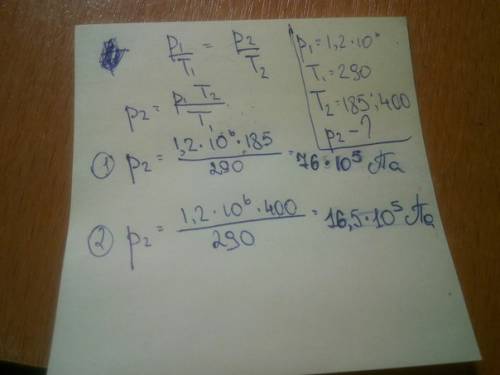 p₁/T₁ = p₂/T₂
p₂ = p₁ T₂/T₁
p₁ = 1,2·10⁶
T₁ = 290
T₂ = 185; 400
p₂ - ?
① p₂ = 1,2·10⁶·185/290 = 76·10⁵ Па
② p₂ = 1,2·10⁶·400/290 = 16,5·10⁵ Па